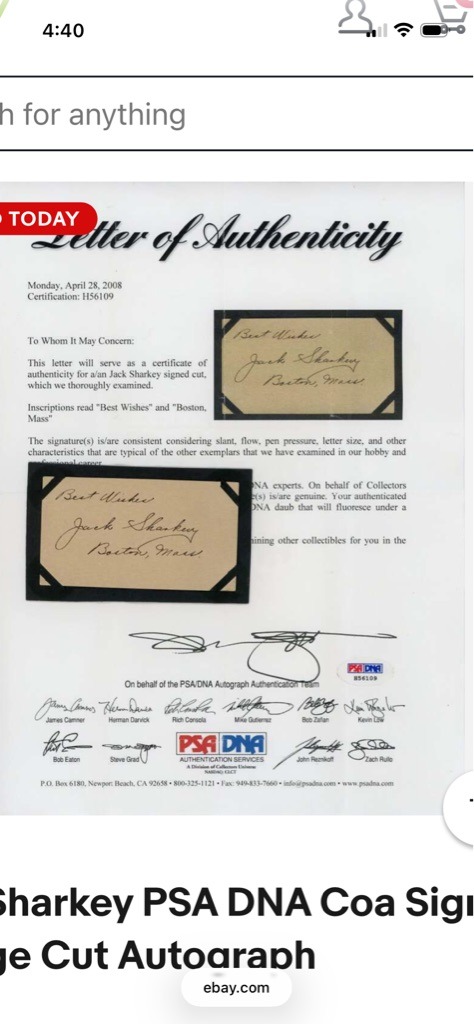 4:40
h for anything
TODAY
Letter of Authenticity
Monday, April 28, 2008
Certification: H56109
To Whom It May Concern:
This letter will serve as a certificate of
authenticity for a/an Jack Sharkey signed cut,
which we thoroughly examined.
Inscriptions read "Best Wishes" and "Boston,
Mass"
Best Wishes
Jack Sharkey
Boston, Mass.
The signature(s) is/are consistent considering slant, flow, pen pressure, letter size, and other
characteristics that are typical of the other exemplars that we have examined in our hobby and
professional career
DNA experts. On behalf of Collectors
(s) is/are genuine. Your authenticated
DNA daub that will fluoresce under a
ining other collectibles for you in the
Best Wishes
Jack Sharkey
Boston, Mass.
PSA DNA
H56109
On behalf of the PSA/DNA Autograph Authentication Team
James Camner Herman Darvick Rich Consola Mike Gutierrez Bob Zafian Kevin
Bob Eaton Steve Grad PSA DNA John Reznikoff Zach Rullo
AUTHENTICATION SERVICES
A Division of Collectors Universe
NASDAQ: CLCT
P.O. Box 6180, Newport Beach, CA 92658 • 800-325-1121 • Fax: 949-833-7660 • info@psadna.com • www.psadna.com
Sharkey PSA DNA Coa Sig
ge Cut Autograph
ebay.com